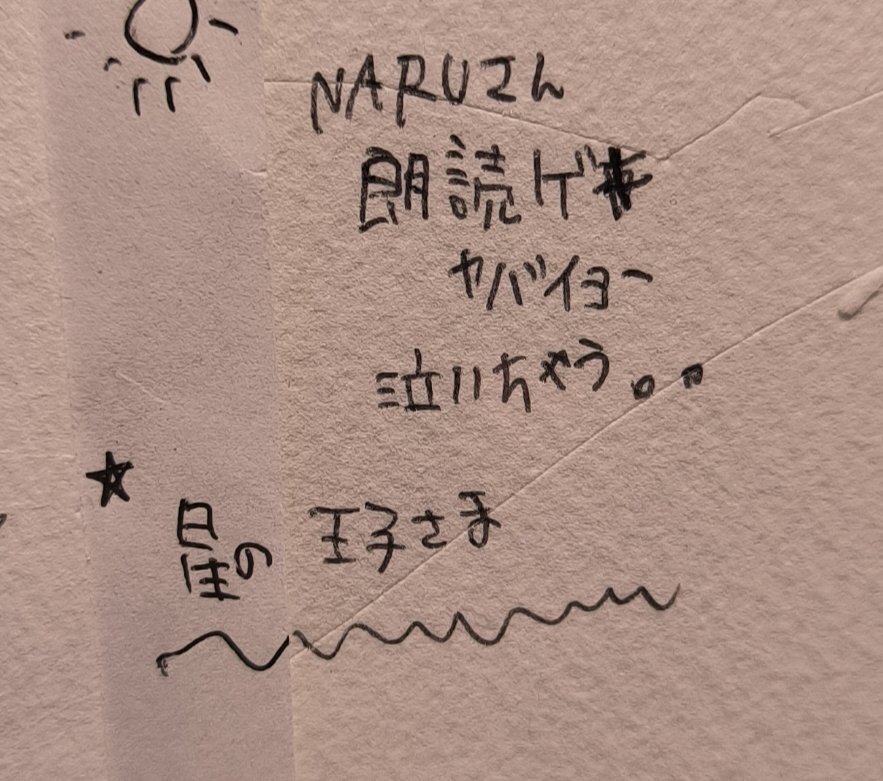 NARUさん
朗読ゲキ
ヤバイヨー
泣いちゃう。。
★
星の王子さま